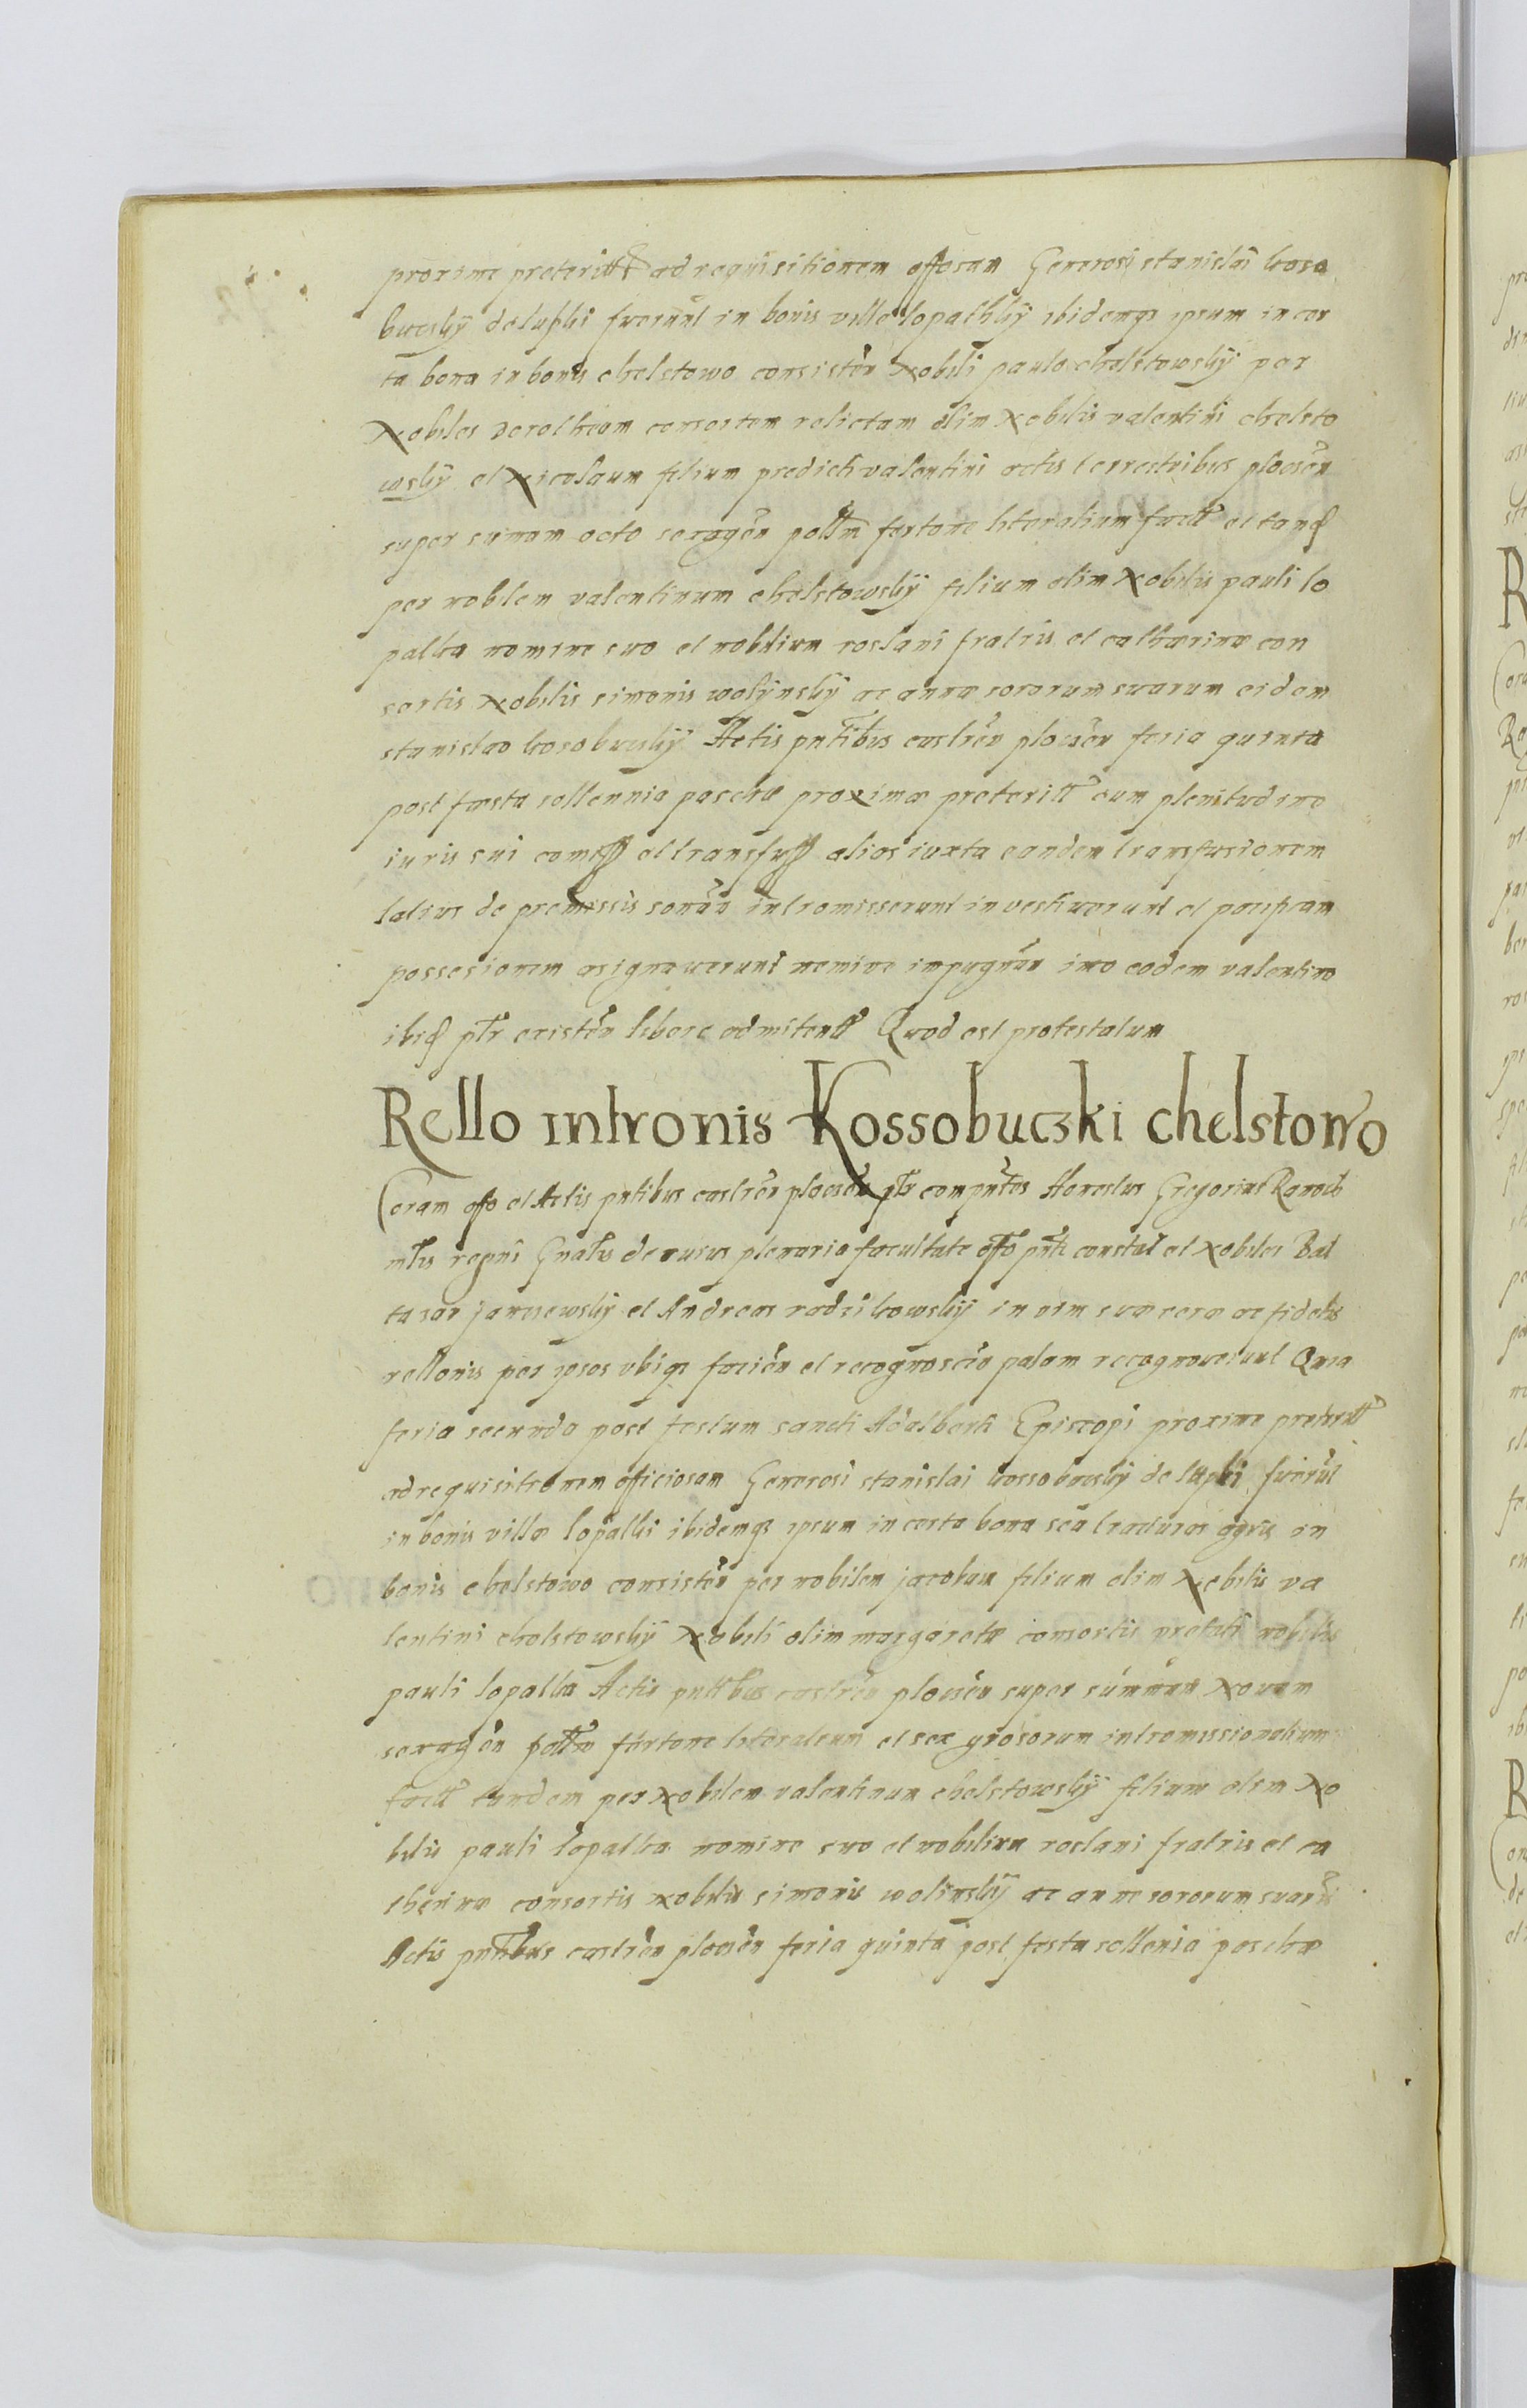 proxime preteritt ad requisitionem offosam Generosi stanislai koso
buczky de lupki fuerunt in bonis ville lopathky ibidemq ipsum in cer
ta bona in bonis chelstowo consisten Nobili paulo chelstowsky per
Nobiles dorotheam consortem relictam olim Nobilis valentini chelsto
wsky et Nicolaum filium predicti valentini actis terrestribus plocen
super sumam octo sexagen pollm fertone literalium factt et tand
per noblem valentinum chelstowsky filium olim Nobilis pauli lo
patka nomine suo et nobilium roslani fratris et catharinæ con
sortis Nobilis simonis wolynsky ac annæ sororum suarum eidem
stanislao kosobuczky Actis pntibus castren plocen feria quinta
post festa sollennia paschæ proximæ preteritt cum plenitudine
iuris sui et transfuss alios iuxta eandem transfusionem
latius de premissis sonan intromisserunt investiverunt et pacificam
possesionem asignaverunt nemine impugnan imo eodem valentino
ibid ptr existen libere admitentt Quod est protestatum
Rello intronis Kossobuczki chelstowo
Coram offo et Actis pntibus castren plocen ptr compntes Honestus Gregorius Ranoch
mtis regni Gnalis de cuius plenaria facultate offo pnti constat et Nobiles Bal
tasar janczewsky et Andreas radzikowsky in vim suæ veræ ac fidelis
rellonis per ipsos ubiq facien et recognoscen palam recognoverunt Quia
feria secunda post festum sancti Adalberti Episcopi proxime preteritt
ad requisitionem officiosam Generosi stanislai kossobuczky de lupki fuerunt
in bonis villæ lopatki ibidemq ipsum in certa bona seu agris in
bonis chelstowo consisten per nobilem jacobum filium olim Nobilis va
lentini chelstowsky Nobili olim margaretæ consortis prefati nobilis
pauli lopatka Actis pnttibus castren plocen super summam Novem
sexagen pollm fertone literalium et sex grosorum intromissionalium
factt tandem per Nobilem valentinum chelstowsky filium olim No
bilis pauli lopatka nomine suo et nobilium roslani fratris et ca
therinæ consortis nobilis simonis wolinsky ac annæ sororum suarum
Actis pntibus castren plocen feria quinta post festa sollenia paschæ